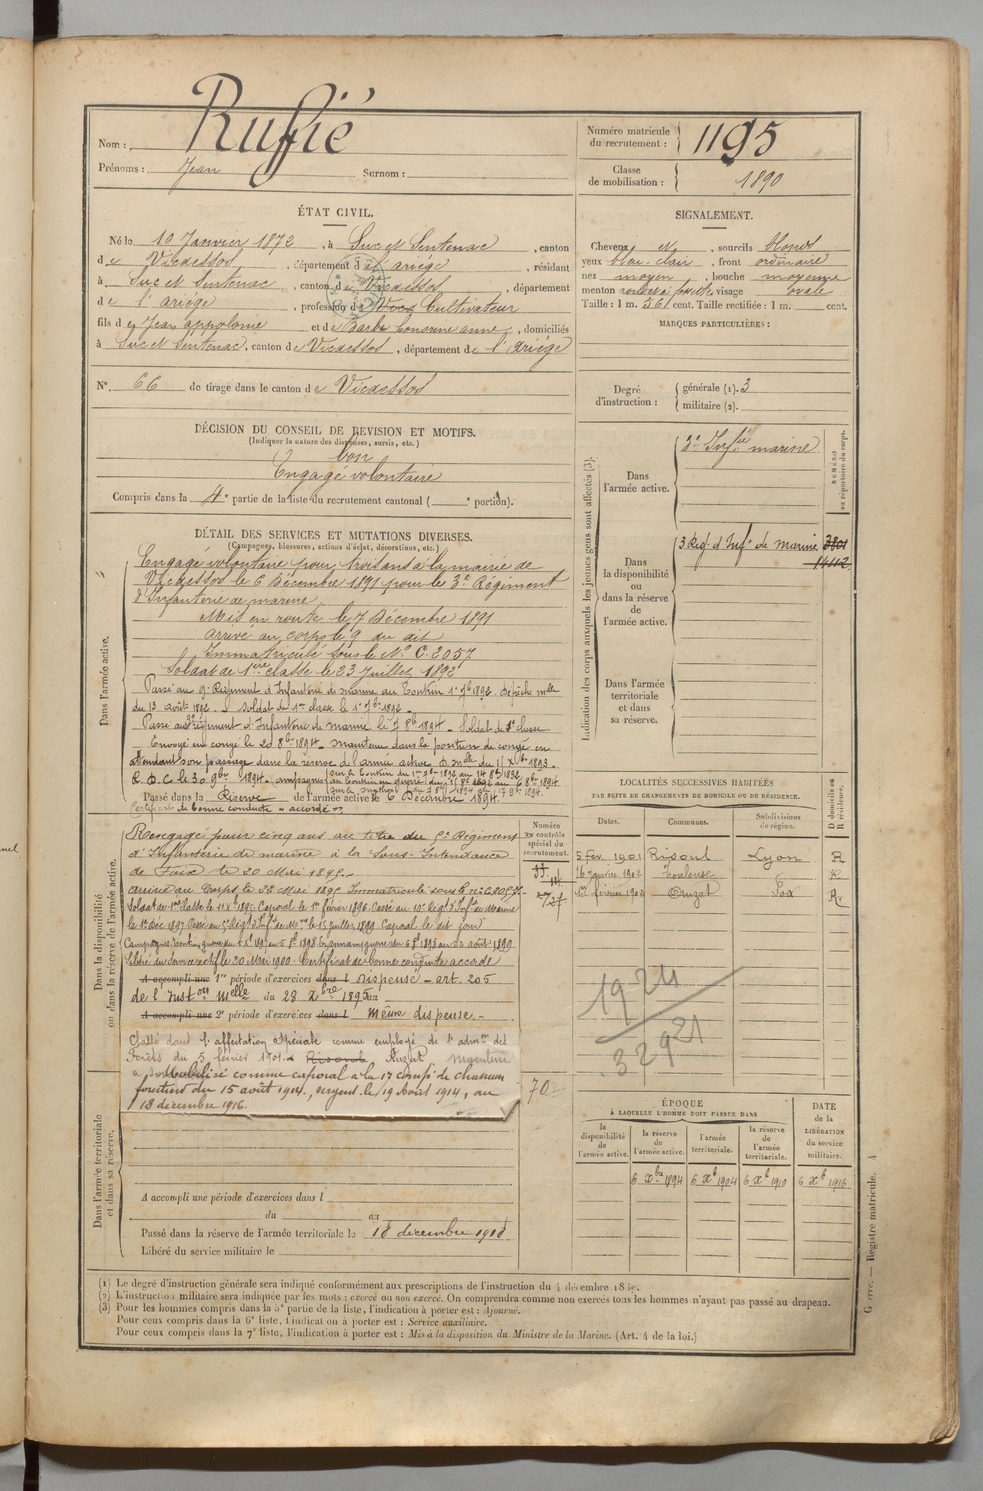 Nom : Rufié
Prénoms : Jean Surnom :
Numéro matricule du recrutement : 1195
Classe de mobilisation : 1890
ÉTAT CIVIL.
Né le 10 Janvier 1872, à Suc et Sentenac, canton
de Vicdessos, département de l'ariège, résidant
à Suc et Sentenac, canton de Vicdessos, département
de l'ariège, profession de Cultivateur
fils de Jean appolonie et de Barbe anne, domiciliés
à Suc et Sentenac, canton de Vicdessos, département de l'Ariège
N° 66 de tirage dans le canton de Vicdessos
SIGNALEMENT.
Cheveux et , sourcils blonds
yeux bleu-clair, front ordinaire
nez moyen, bouche moyenne
menton , visage ovale
Taille : 1 m. 561 cent. Taille rectifiée : 1 m. cent.
MARQUES PARTICULIÈRES :
Degré d'instruction : générale (1). 3
militaire (2).
DÉCISION DU CONSEIL DE REVISION ET MOTIFS.
(Indiquer la nature des dispenses, sursis, etc.)
bon
Engagé volontaire
Compris dans la 4e partie de la liste du recrutement cantonal ( e portion).
DÉTAIL DES SERVICES ET MUTATIONS DIVERSES.
(Campagnes, blessures, actions d'éclat, décorations, etc.)
Dans l'armée active.
Engagé volontaire pour trois ans à la mairie de
Vicdessos le 6 Décembre 1891 pour le 3e Régiment
d'Infanterie de marine
Mis en route le 7 Décembre 1891
arrivé au corps le 9 du dit
Immatriculé sous le No C. 2057
Soldat de 1ere classe le 23 Juillet 1892
Passé au 9e Régiment d'Infanterie de marine au Tonkin 1er 7bre 1892. Dépêche mlle
du 13 août 1892. - Soldat de 1re classe le 1er 7bre 1892.
Passé au 3e régiment d'Infanterie de marine le 7 8bre 1894. Soldat de 2e classe
Envoyé en congé le 20 8bre 1894. maintenu dans la position de congé en
attendant son passage dans la réserve de l'armée active D. mlle du 11 Xbre 1893.
R. D. C. le 30 9bre 1894. campagnes
Passé dans la Réserve de l'armée active le 6 Décembre 1894.
Certificat de bonne conduite "accordé".
Dans la disponibilité ou dans la réserve de l'armée active.
Rengagé pour cinq ans au titre du Régiment
d'Infanterie de marine à la Sous-Intendance
de Foix le 20 Mai 1895.-
arrivé au Corps le 23 Mai 1895 Immatriculé sous le n°
Soldat de 1re classe le 11 Xbre 1895. Caporal le 1er février 1896. Passé au 10e Régt d'Infie de Marine
le 1er Déc 1897. Passé au Régt d'Infie de Mne le 15 juillet 1899 Caporal le dit jour
Libéré du Service actif le 20 Mai 1900. Certificat de bonne conduite accordé
A accompli une 1re période d'exercices dans l dispensé - art. 205
de l'Inston Melle du 28 Xbre 1895 au
A accompli une 2e période d'exercices dans l Même dispense.-
Classé dans l'affectation Spéciale comme employé de l'admon des
Forêts du 5 février 1901. à Risoul, Auzat, Maintenu
Mobilisé comme caporal à la 17 compie de chasseurs
forestiers du 15 août 1914, sergent le 19 Août 1914, au
18 décembre 1916.
Numéro au contrôle spécial du recrutement.
70
Dans l'armée territoriale et dans sa réserve.
A accompli une période d'exercices dans l
du au
Passé dans la réserve de l'armée territoriale le 18 décembre 1918
Libéré du service militaire le
Indication des corps auxquels les jeunes gens sont affectés (3).
NUMÉRO au répertoire du corps.
Dans l'armée active. 3e Infie marine
Dans la disponibilité ou dans la réserve de l'armée active. 3 Reg. d'Infie de Marine 3801
14112
Dans l'armée territoriale et dans sa réserve.
LOCALITÉS SUCCESSIVES HABITÉES
PAR SUITE DE CHANGEMENTS DE DOMICILE OU DE RÉSIDENCE.
Dates. Communes. Subdivisions de région. D domicile ou R résidence.
5 fév. 1901 Risoul Lyon R
16 janvier 1902 Toulouse R
février 1903 Auzat Foix R
1924
32921
ÉPOQUE
À LAQUELLE L'HOMME DOIT PASSER DANS
la disponibilité de l'armée active. la réserve de l'armée active. l'armée territoriale. la réserve de l'armée territoriale. DATE de la LIBÉRATION du service militaire.
6 Xbre 1894 6 Xb 1904 6 Xb 1910 6 Xb 1916
(1) Le degré d'instruction générale sera indiqué conformément aux prescriptions de l'instruction du 4 décembre 1889.
(2) L'instruction militaire sera indiquée par les mots : exercé ou non exercé. On comprendra comme non exercés tous les hommes n'ayant pas passé au drapeau.
(3) Pour les hommes compris dans la 5e partie de la liste, l'indication à porter est : Ajourné.
Pour ceux compris dans la 6e liste, l'indication à porter est : Service auxiliaire.
Pour ceux compris dans la 7e liste, l'indication à porter est : Mis à la disposition du Ministre de la Marine. (Art. 4 de la loi.)
Guerre. — Registre matricule. 4